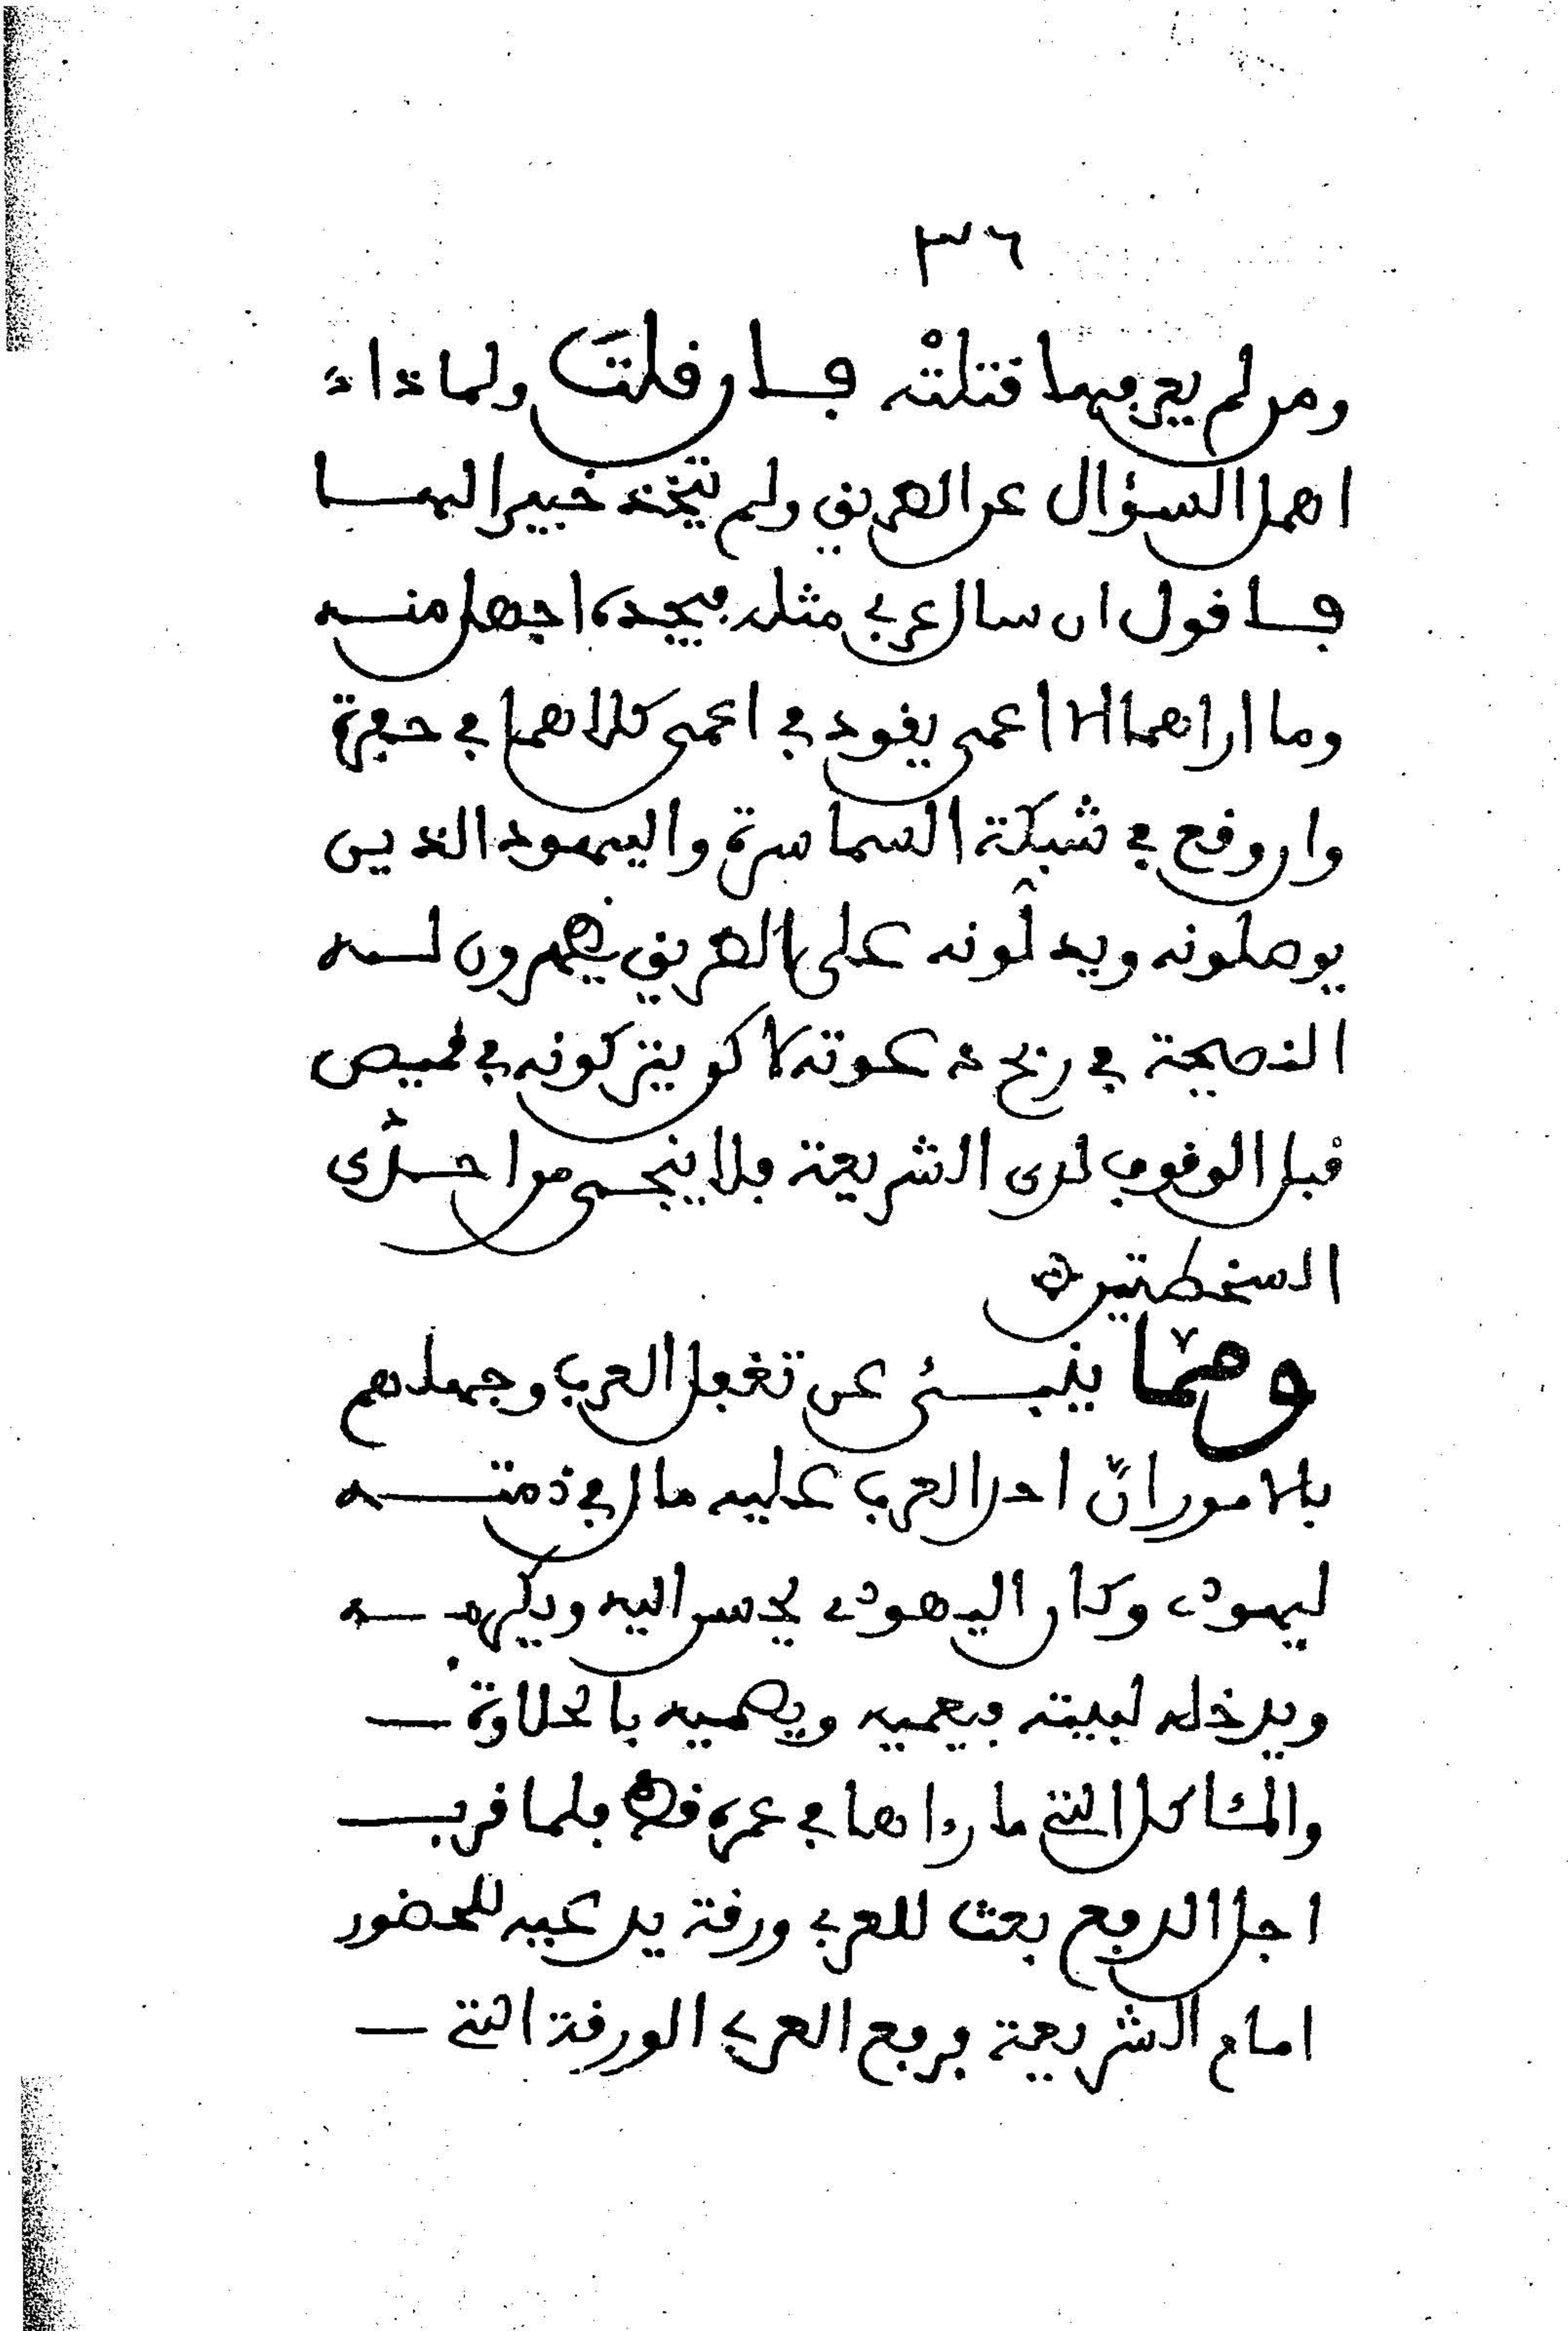 ٣٦
ومن لم يعرفها قتلته فان قلت ولماذا
اهمل السؤال عن الطريق ولم يتخذ خبيرا لهما
فاقول ان سال عربي مثله فيجده اجهل منه
وما اراهما الا اعمى يقود في اعمى كلاهما في حفرة
وان وقع في شبكة السماسرة واليهود الذين
يوصلونه ويدلّونه على الطريق يظهرون له
النصيحة في ربح دعوته لاكن يتركونه في قميص
قبل الوقوف لدى الشريعة فلا ينجى من احدى
السخطتين
ومما ينبئ عن تغفل العرب وجهلهم
بالامور انّ احد العرب عليه مال في ذمته
ليهودي وكان اليهودي يحسن اليه ويكرمه
ويدخله لبيته فيعميه ويطميه بالحلاوة
والمئاكل التي ما رءاها في عمره قط فلما قرب
اجل الدفع بعث للعربي ورقة يدعيه للحضور
امام الشريعة فرفع العربي الورقة التي